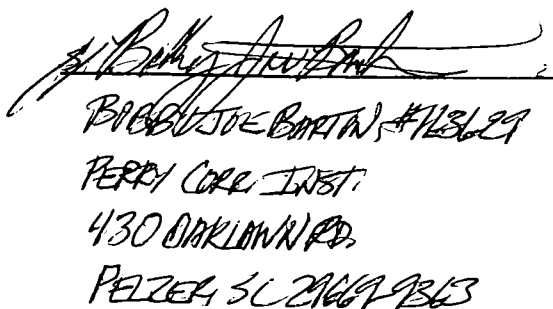 s/ Bobby Joe Barton
BOBBY JOE BARTON, #113629
PERRY CORR. INST.
430 OAKLAWN RD.
PELZER, SC 29669-9363